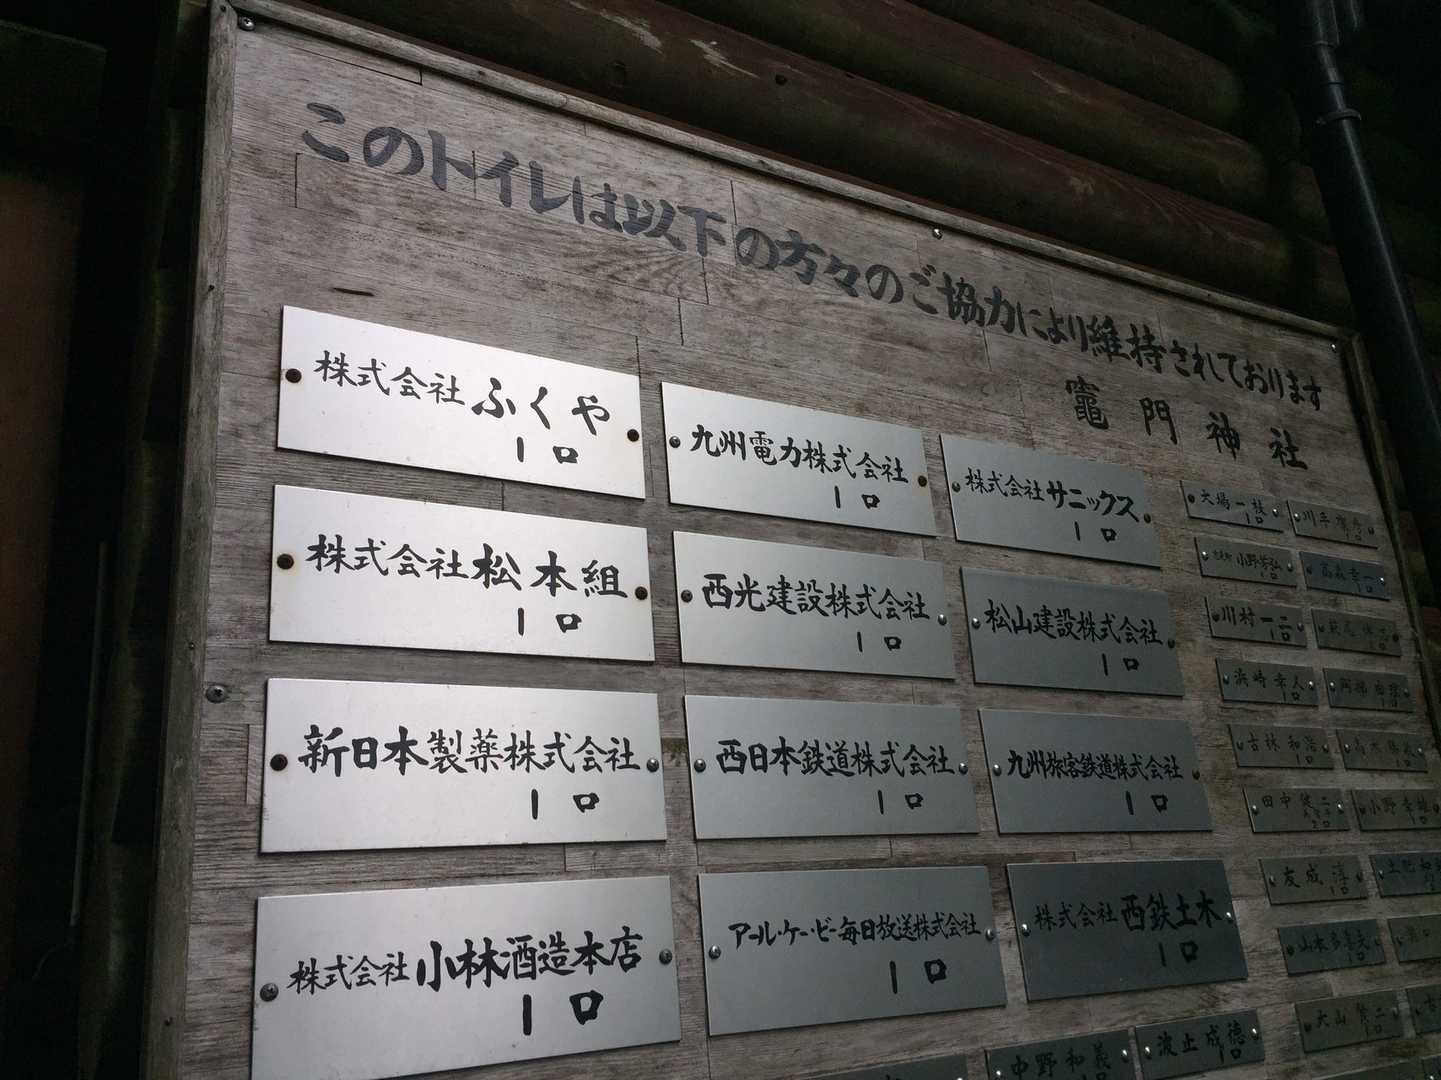 このトイレは以下の方々のご協力により維持されております
竈門神社
株式会社ふくや
1口
九州電力株式会社
1口
株式会社サニックス
1口
株式会社松本組
1口
西光建設株式会社
1口
松山建設株式会社
1口
新日本製薬株式会社
1口
西日本鉄道株式会社
1口
九州旅客鉄道株式会社
1口
株式会社小林酒造本店
1口
アール・ケー・ビー毎日放送株式会社
1口
株式会社西鉄土木
1口
大場一枝
1口
小野芳弘
1口
高森幸一
川村一三
1口
浜崎幸人
1口
古林和浩
1口
田中
友成淳
1口
山本多喜夫
1口
大山
中野和義
波止成徳
1口